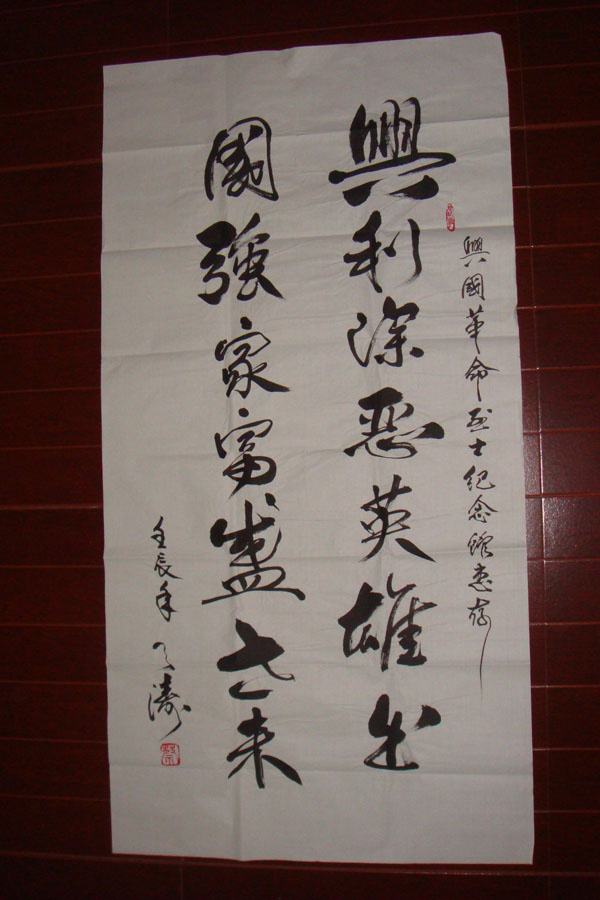 興國革命烈士紀念館惠存
興利除惡英雄出
國強家富盛世來
壬辰年 天濤